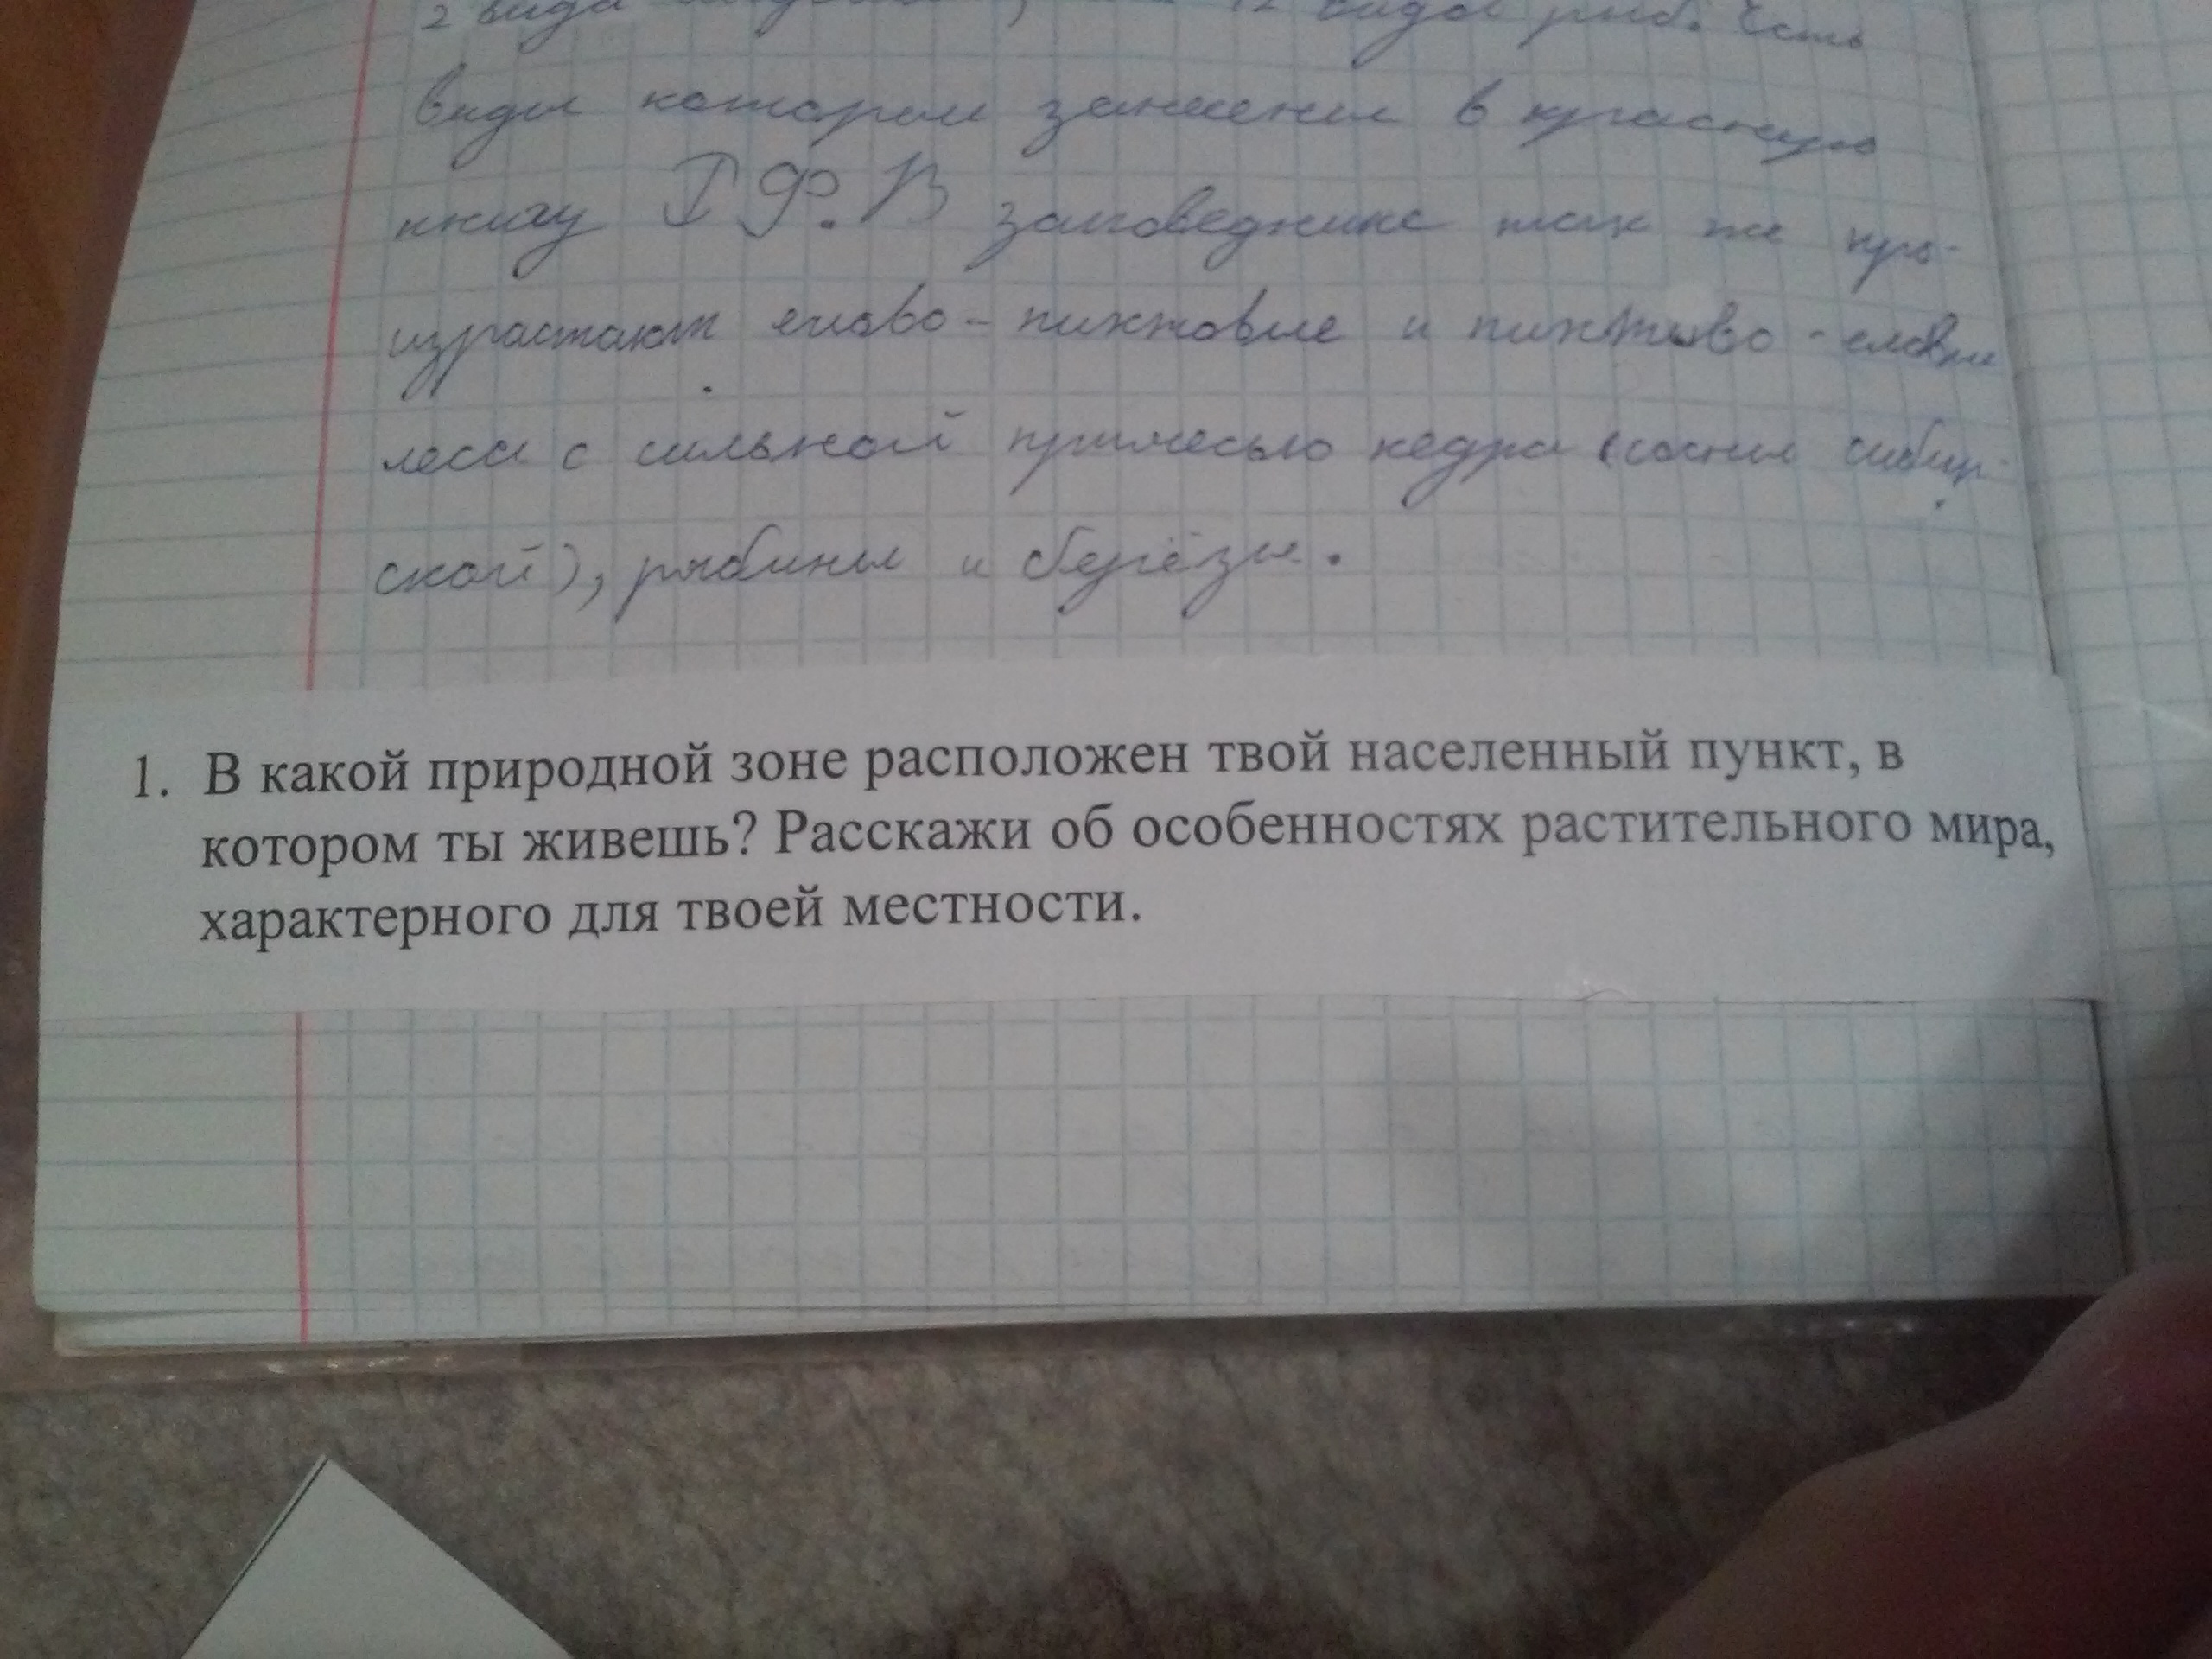 2 вида 12 видов рыб. Есть
виды которые занесены в красную
книгу РФ. В заповеднике так же про-
израстают елово - пихтовые и пихтово - еловые
леса с сильной примесью кедра (сосны сибир-
ской), рябины и берёзы.
1. В какой природной зоне расположен твой населенный пункт, в
котором ты живешь? Расскажи об особенностях растительного мира,
характерного для твоей местности.